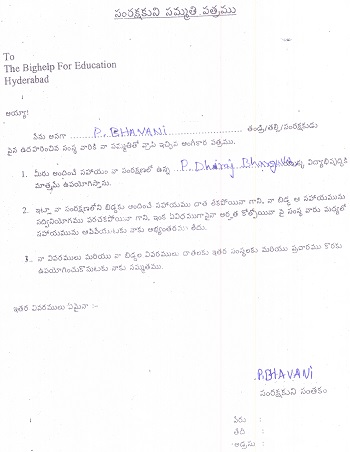 సంరక్షకుని సమ్మతి పత్రము
To
The Bighelp For Education
Hyderabad
అయ్యా!
నేను అనగా P. BHAVANI తండ్రి/తల్లి/సంరక్షకుడు
పైన ఉదహరించిన సంస్థ వారికి నా సమ్మతితో వ్రాసి ఇచ్చిన అంగీకార పత్రము.
1. మీరు అందించే సహాయం నా సంరక్షణలో ఉన్న P. Dharaj విద్యాభివృద్ధికి
మాత్రమే ఉపయోగిస్తాను.
2. ఇట్లా నా సంరక్షణలోని బిడ్డకు అందించే సహాయము దాత లేకపోయినా గాని, నా బిడ్డ ఆ సహాయమును
సద్వినియోగము పరచకపోయినా గాని, ఇంక ఏవిధముగానైనా అర్హత కోల్పోయినా పై సంస్థ వారు మధ్యలో
సహాయమును ఆపివేయుటకు నాకు అభ్యంతరము లేదు.
3. నా వివరములు మరియు నా బిడ్డల వివరములు దాతలకు ఇతర సంస్థలకు మరియు ప్రచారము కొరకు
ఉపయోగించుకొనుటకు నాకు సమ్మతము.
ఇతర వివరములు ఏమైనా :-
P.BHAVANI
సంరక్షకుని సంతకం
పేరు :
తేది :
అడ్రసు :